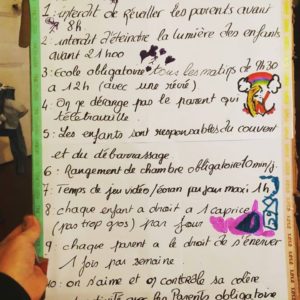 1: interdit de réveiller les parents avant
8h
2: interdit d'éteindre la lumière des enfants
avant 21h00
3: Ecole obligatoire tous les matins de 9h30
à 12h (avec une récré)
4: On ne dérange pas le parent qui
télétravaille
5: Les enfants sont responsables du couvert
et du débarrassage
6: Rangement de chambre obligatoire 10min/j.
7: Temps de jeu vidéo/écran par jour maxi 1h
8: chaque enfant a droit a 1 caprice
(pas trop gros) par jour
9: chaque parent a le droit de s'énerver
1 fois par semaine.
10: on s'aime et on contrôle sa colère
avec les Parents obligatoire